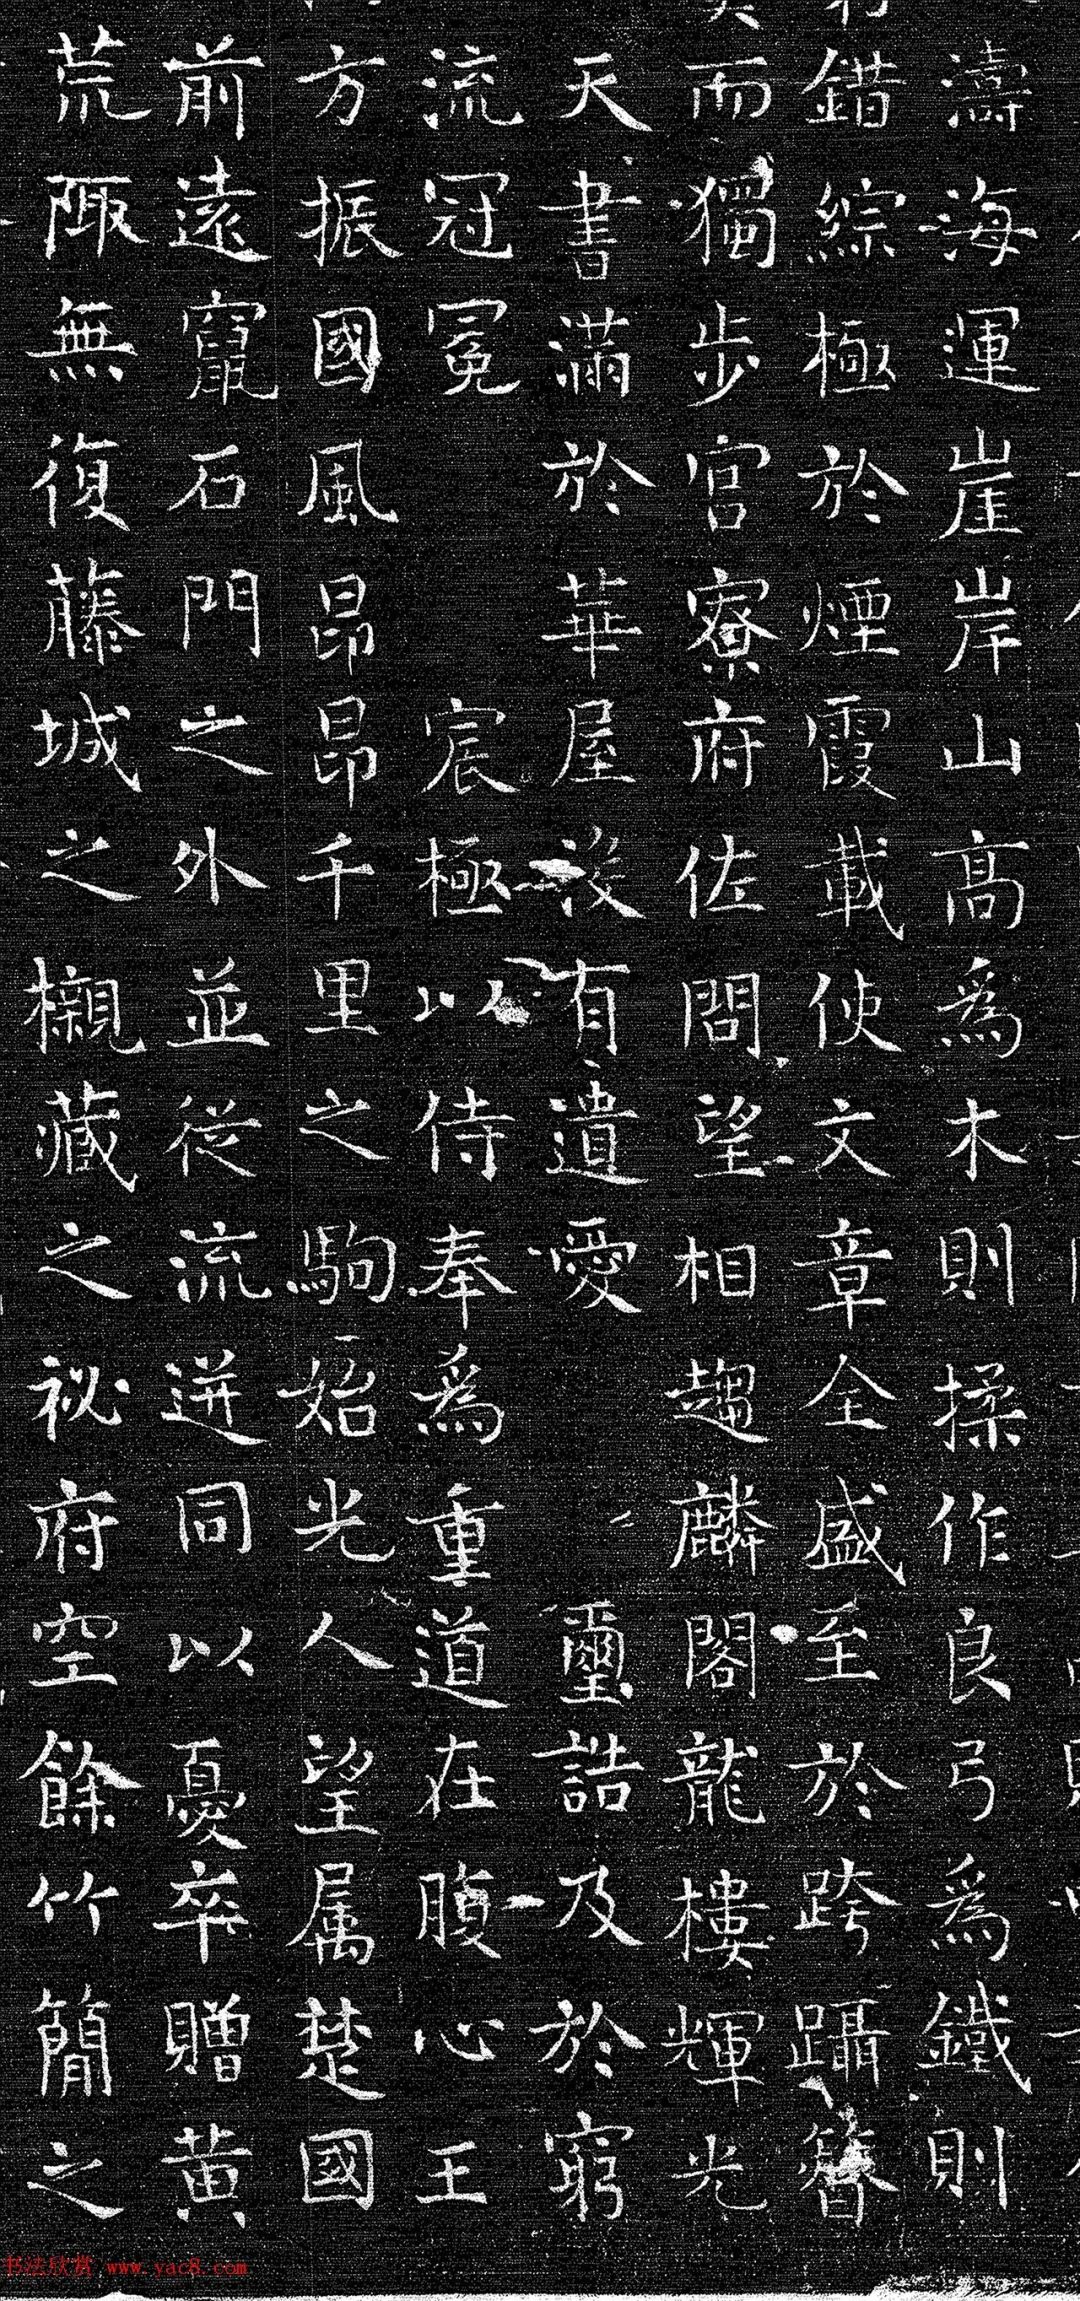 濤海運崖岸山高為木則揉作良弓為鐵則
錯綜極於煙霞載使文章全盛至於跨躡簪
而獨步官寮府佐問望相趨麟閣龍樓輝光
天書滿於華屋沒有遺愛璽誥及於窮
流冠冕宸極以侍奉為重道在腹心王
方振國風昂昂千里之駒始光人望属楚國
前遠竄石門之外並從流迸同以憂卒贈黃
荒陬無復藤城之櫬藏之祕府空餘竹簡之
书法欣赏 www.yac8.com